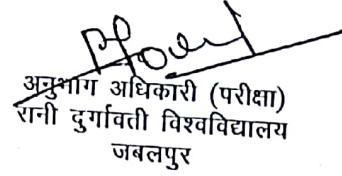 अनुभाग अधिकारी (परीक्षा)
रानी दुर्गावती विश्वविद्यालय
जबलपुर